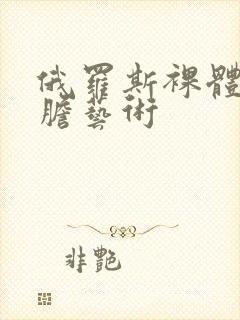 俄羅斯裸體
膽藝術
非艷